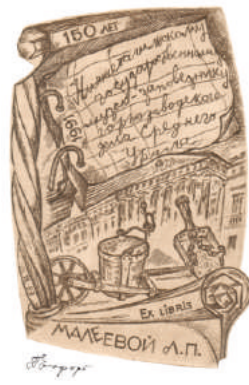 150 ЛЕТ
Нижнетагильскому
государственному
музею-заповеднику
горнозаводского
дела Среднего
Урала
1991
EX LIBRIS
МАЛЕЕВОЙ Л.П.